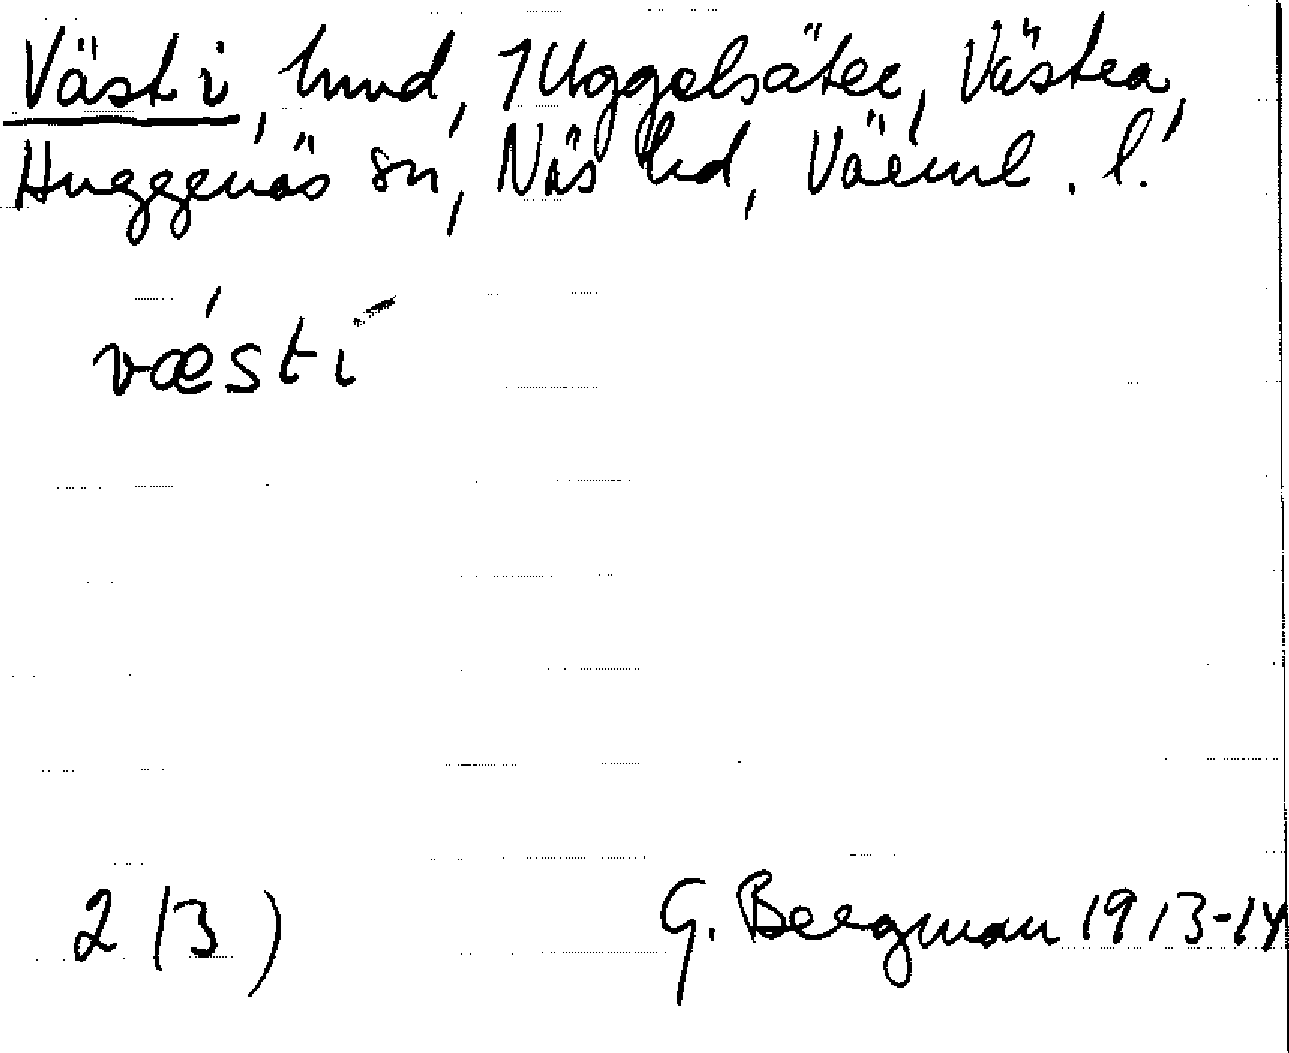 Västi, hmd, 1 Uggelsäter, Västra,
Huggenäs sn, Näs hd, Värml. l.
vǽsti
2 (3)
G. Bergman 1913-14